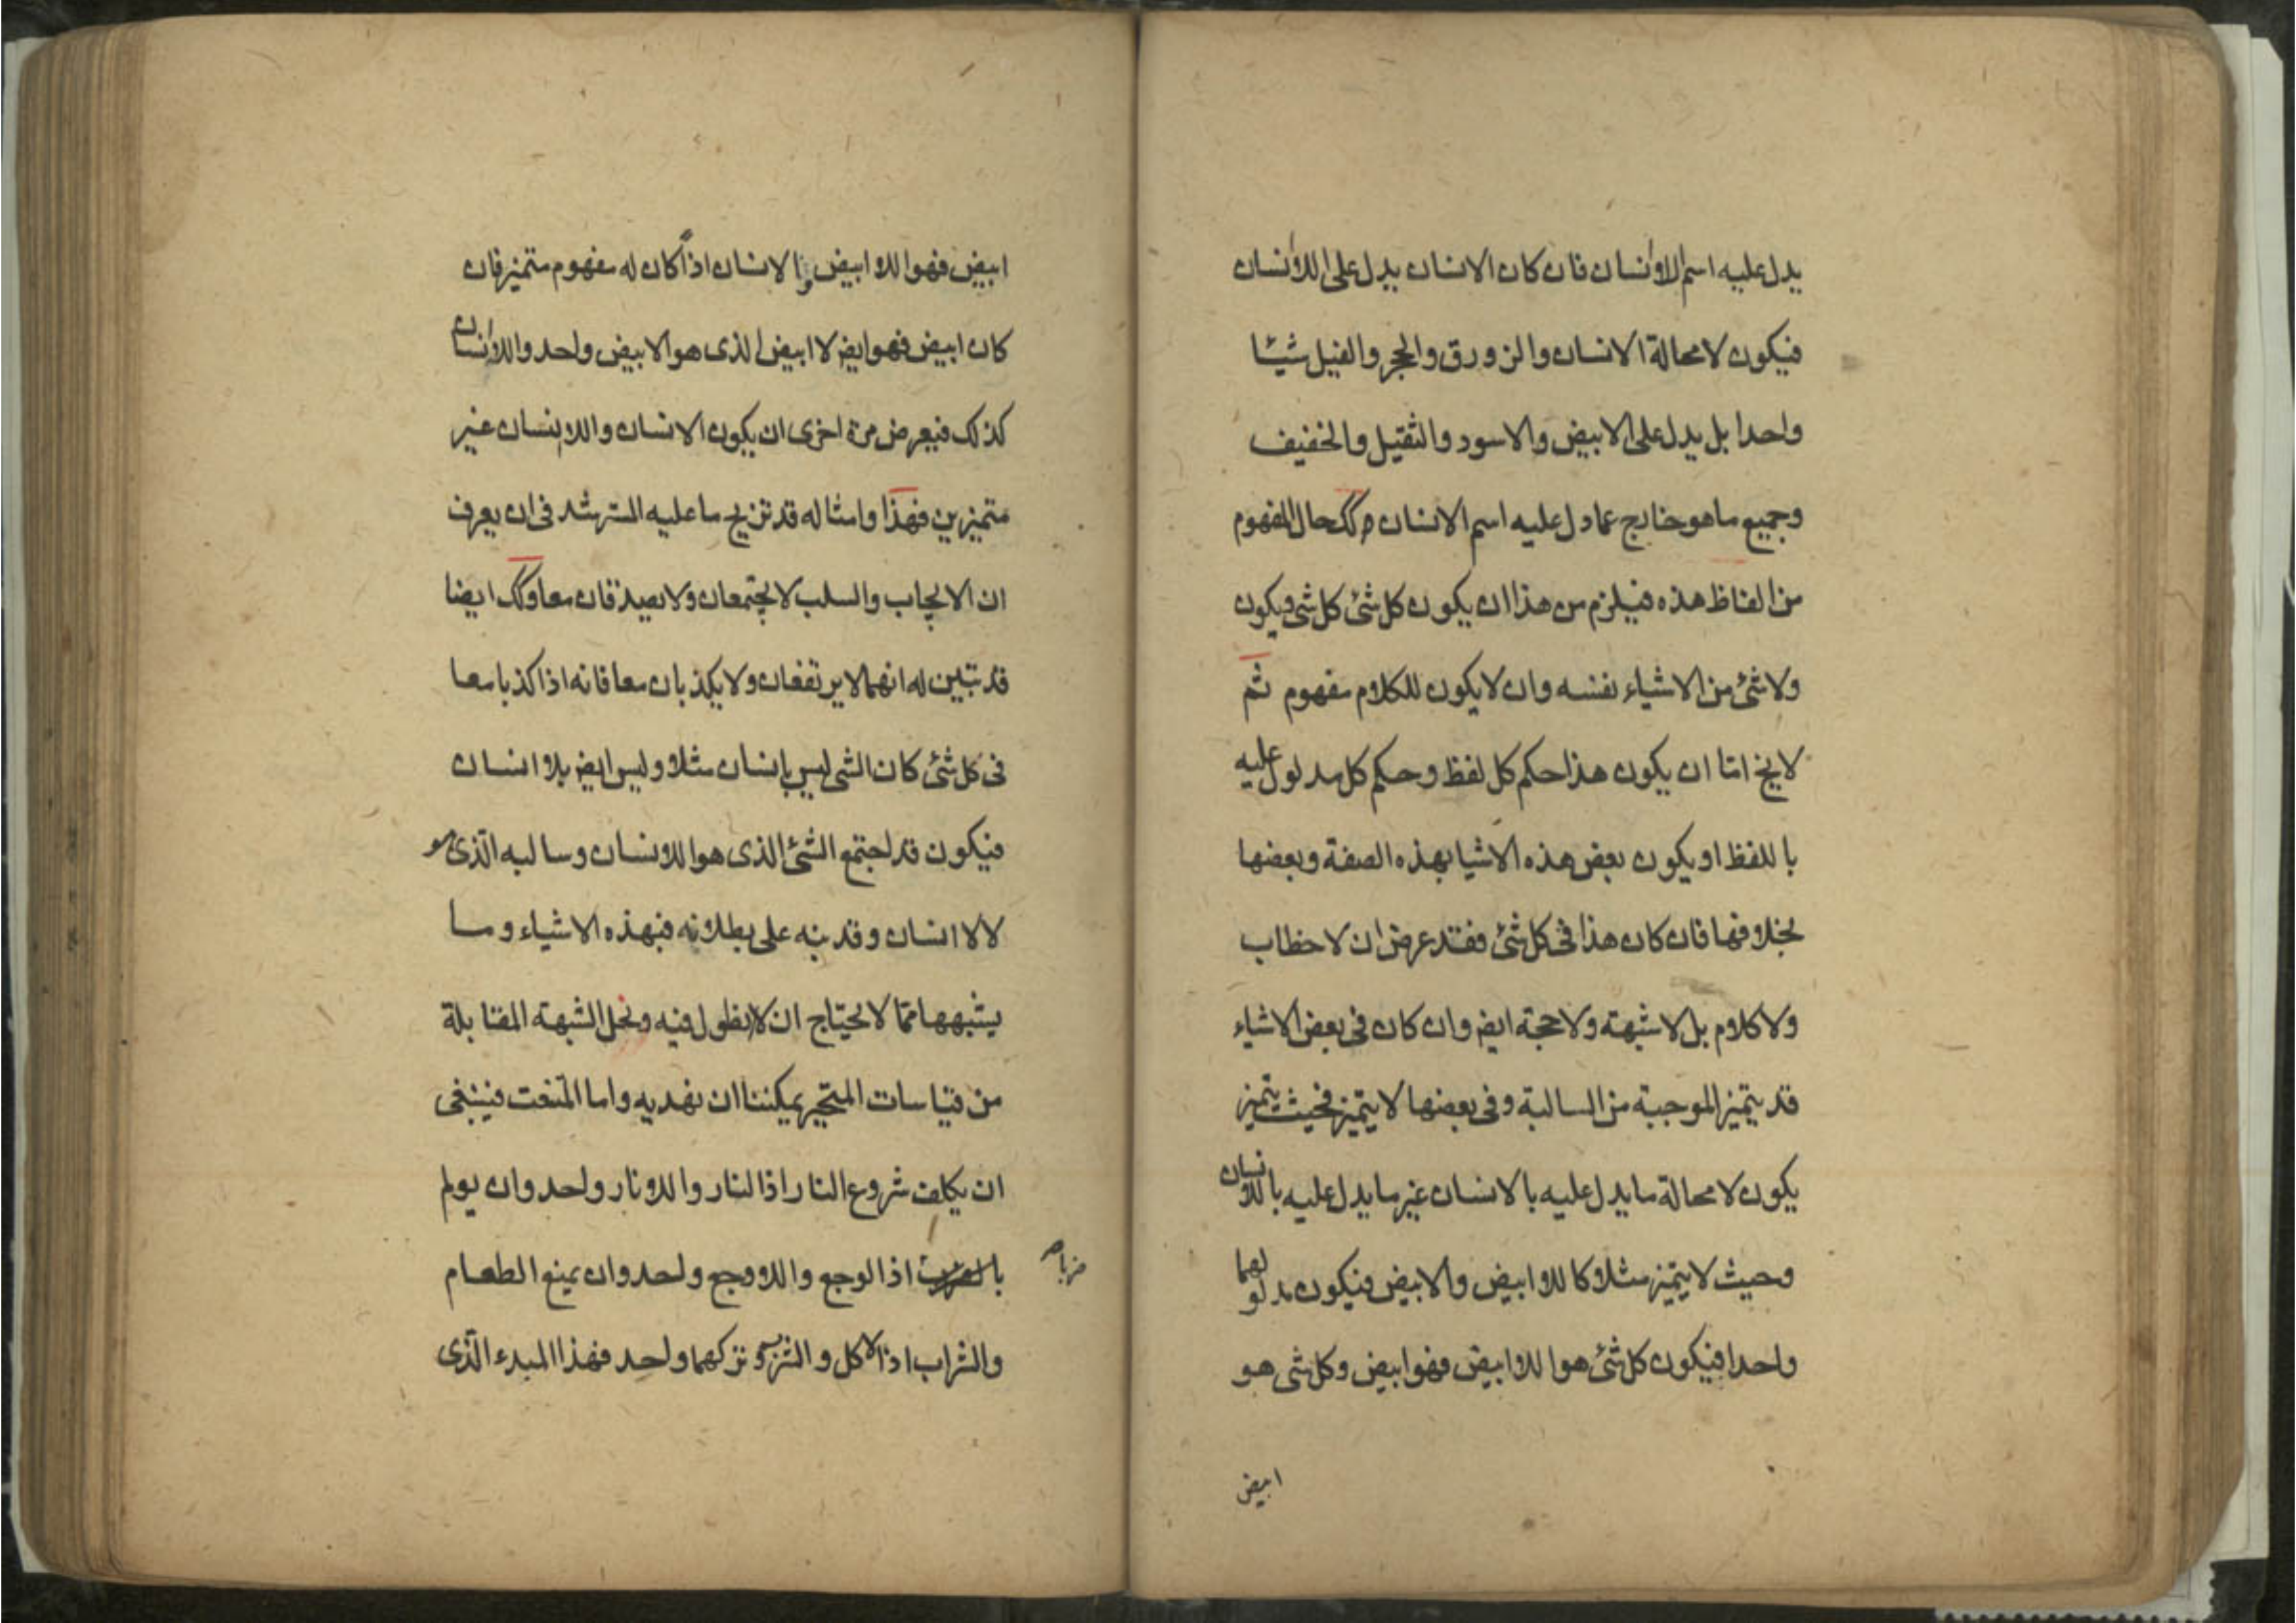 يدل عليه اسم اللاانسان فان كان الانسان يدل على اللاانسان
فيكون لا محالة الانسان والزورق والحجر والفيل شيئا
واحدا بل يدل على الابيض والاسود والثقيل والخفيف
وجميع ما هو خارج عما دل عليه اسم الانسان وكك حال المفهوم
من الفاظ هذه فيلزم من هذا ان يكون كل شئ كل شى ويكون
ولا شئ من الاشياء نفسه وان لا يكون للكلام مفهوم ثم
لا يخ اما ان يكون هذا حكم كل لفظ وحكم كل مدلول عليه
باللفظ او يكون بعض هذه الاشيا بهذه الصفة وبعضها
بخلافها فان كان هذا فى كل شئ فقد عرض ان لا خطاب
ولا كلام بل لا شبهة ولا حجة ايض وان كان فى بعض الاشياء
قد يتميز الموجبة من السالبة وفى بعضها لا يتميز فحيث يتميز
يكون لا محالة ما يدل عليه بالانسان غير ما يدل عليه باللاانسان
وحيث لا يتميز مثلا كاللاابيض والابيض فيكون مدلولهما
واحدا فيكون كل شئ هو اللاابيض فهو ابيض وكل شى هو
ابيض
ابيض فهو اللاابيض والانسان اذا كان له مفهوم متميز فان
كان ابيض فهو ايض لا ابيض الذى هو الابيض واحد واللاانسان
كذلك فيعرض مرة اخرى ان يكون الانسان واللاانسان غير
متميزين فهذا وامثاله قد تزيح ما عليه المسترشد فى ان يعرف
ان الايجاب والسلب لا يجتمعان ولا يصدقان معا وكك ايضا
قد تبين له انهما لا يرتفعان ولا يكذبان معا فانه اذا كذبا معا
فى كل شئ كان الشى ليس بانسان مثلا وليس ايض بلاانسان
فيكون قد اجتمع الشئ الذى هو اللاانسان وسالبه الذى هو
لا لاانسان وقد نبه على بطلانه فبهذه الاشياء وما
يشبهها مما لا يحتاج ان لا نطول فيه ونحل الشبهة المقابلة
من قياسات المتحير يمكننا ان نهديه واما المتعنت فينبغى
ان يكلف شروع النار اذ النار واللانار واحد وان يولم
ضربا
بالضرب اذ الوجع واللاوجع واحد وان يمنع الطعام
والشراب اذ الاكل والشرب وتركهما واحد فهذا المبدء الذى